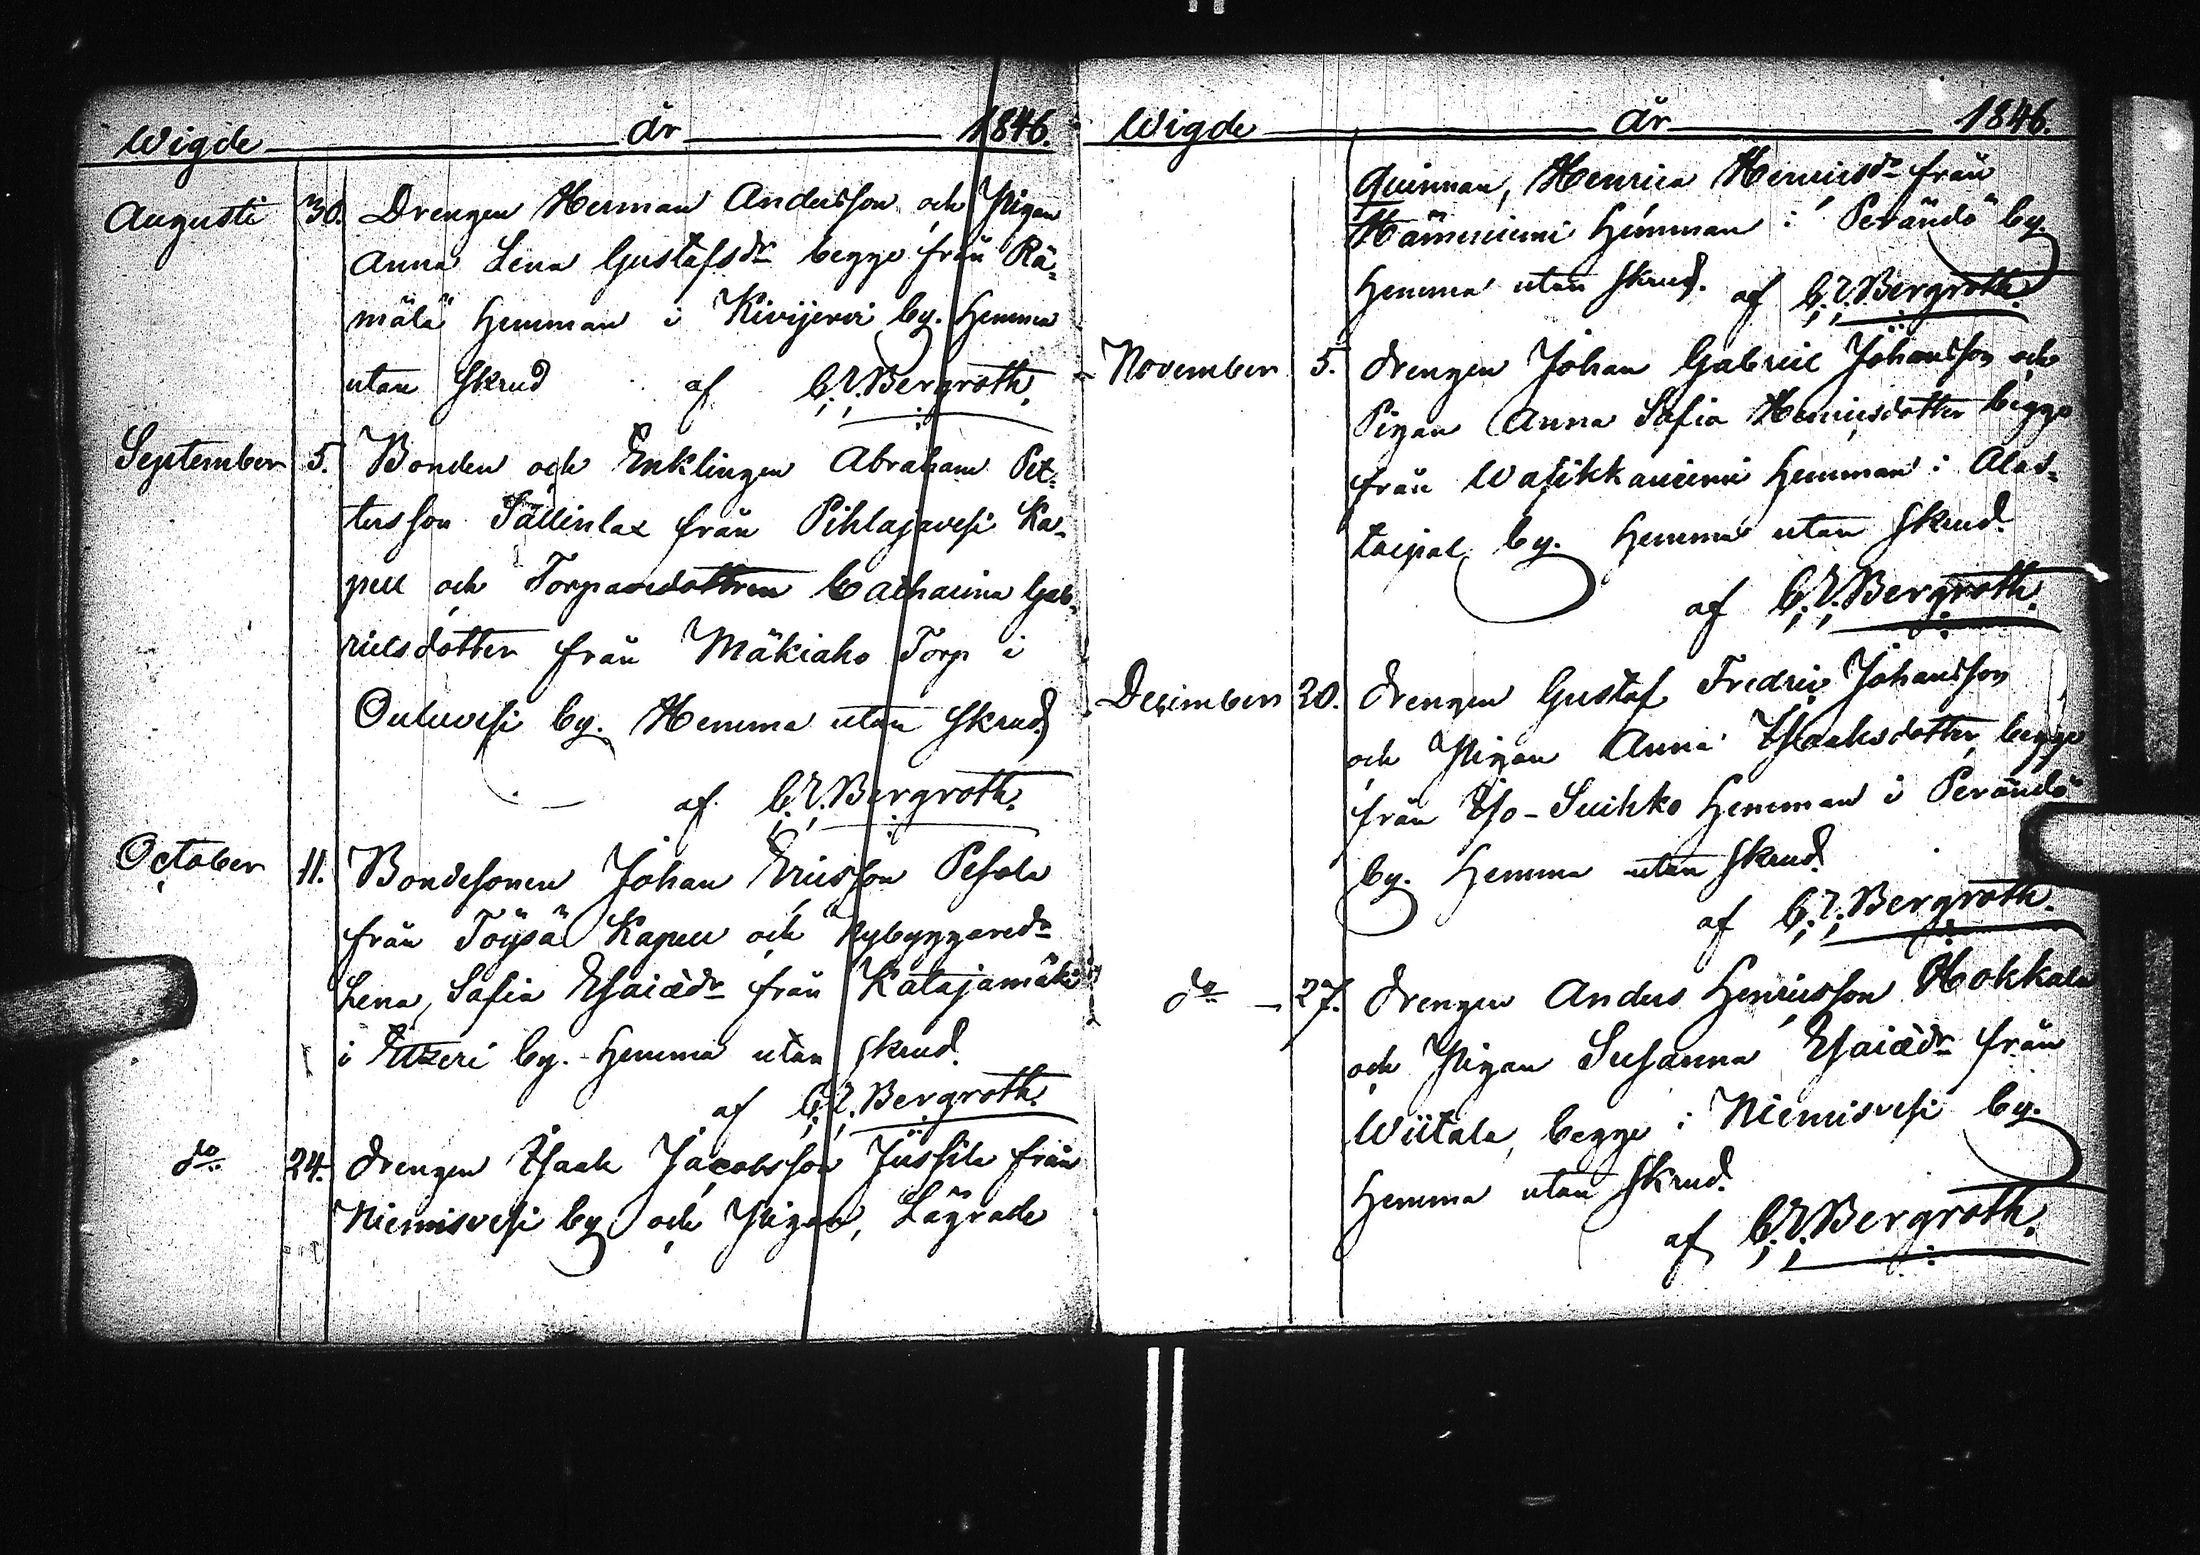 Wigde år 1846.
Augusti 30. Drengen Herman Andersson och Pigan
Anna Lena Gustafsdr begge från Rä-
mälä Hemman i Kivijervi by. Hemma
utan Skrud af C. E. Bergroth.
September 5. Bonden och Enklingen Abraham Pet-
tersson Sällinlax från Pihlajavesi Ka-
pell och Torparedottren Catharina Gab-
rielsdotter från Mäkiaho Torp i
Ouluvesi by. Hemma utan Skrud
af C. E. Bergroth.
October 11. Bondesonen Johan Ericsson Pesola
från Töysä Kapell och Nybyggaredr
Lena, Safia Esaiædr från Katajamäki
i Etzeri by. Hemma utan Skrud.
af C. E. Bergroth.
do 24. Drengen Isaak Jacobsson Jussila från
Niemisvesi by och Pigan, Lägrade
Wigde år 1846.
Quinnan, Henrica Henricsdr från
Hämeniemi Hemman i Perändö by.
Hemma utan Skrud. af C. E. Bergroth.
November 5. Drengen Johan Gabriel Johansson och
Pigan Anna Safia Henricsdotter begge
från Watikkaniemi Hemman i Alas-
taipal by. Hemma utan Skrud.
af C. E. Bergroth.
December 20. Drengen Gustaf Fredric Johansson
och Pigan Anna Isaaksdotter, begge
från Iso-Suihko Hemman i Perändö
by. Hemma utan Skrud.
af C. E. Bergroth.
do 27. Drengen Anders Henricsson Hokkala
och Pigan Susanna Esaiædr från
Wiitala, begge i Niemisvesi by.
Hemma utan Skrud.
af C. E. Bergroth.